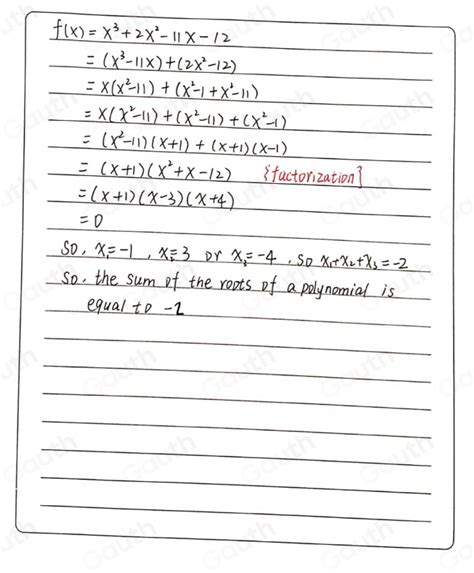 f(x) = x³+2x²-11x-12
= (x³-11x)+(2x²-12)
= x(x²-11) + (x²-1+x²-11)
= x(x²-11) + (x²-11) + (x²-1)
= (x²-11)(x+1) + (x+1)(x-1)
= (x+1)(x²+x-12) {factorization}
= (x+1)(x-3)(x+4)
= 0
So, x₁=-1, x₂=3 or x₃=-4, so x₁+x₂+x₃=-2
So, the sum of the roots of a polynomial is
equal to -2